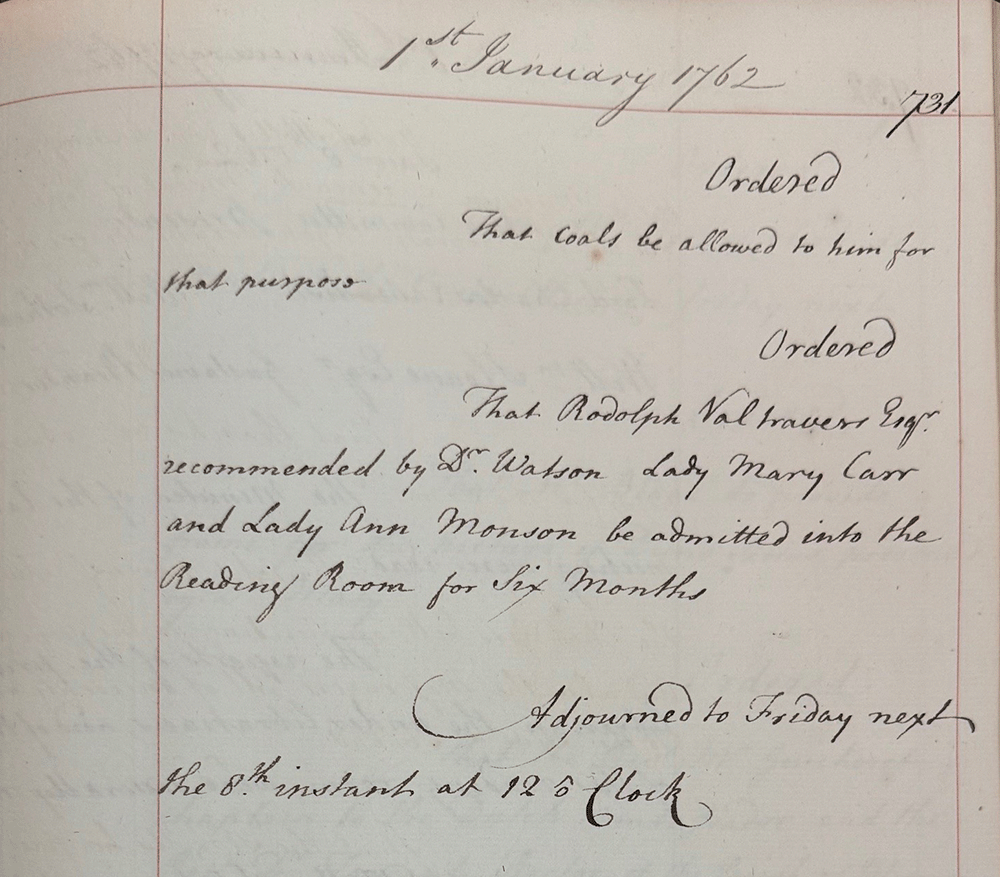 1st. January 1762
731
Ordered
That Coals be allowed to him for
that purpose
Ordered
That Rodolph Valtravers Esqr.
recommended by Dr. Watson Lady Mary Carr
and Lady Ann Monson be admitted into the
Reading Room for Six Months
Adjourned to Friday next
the 8th. instant at 12 ō Clock